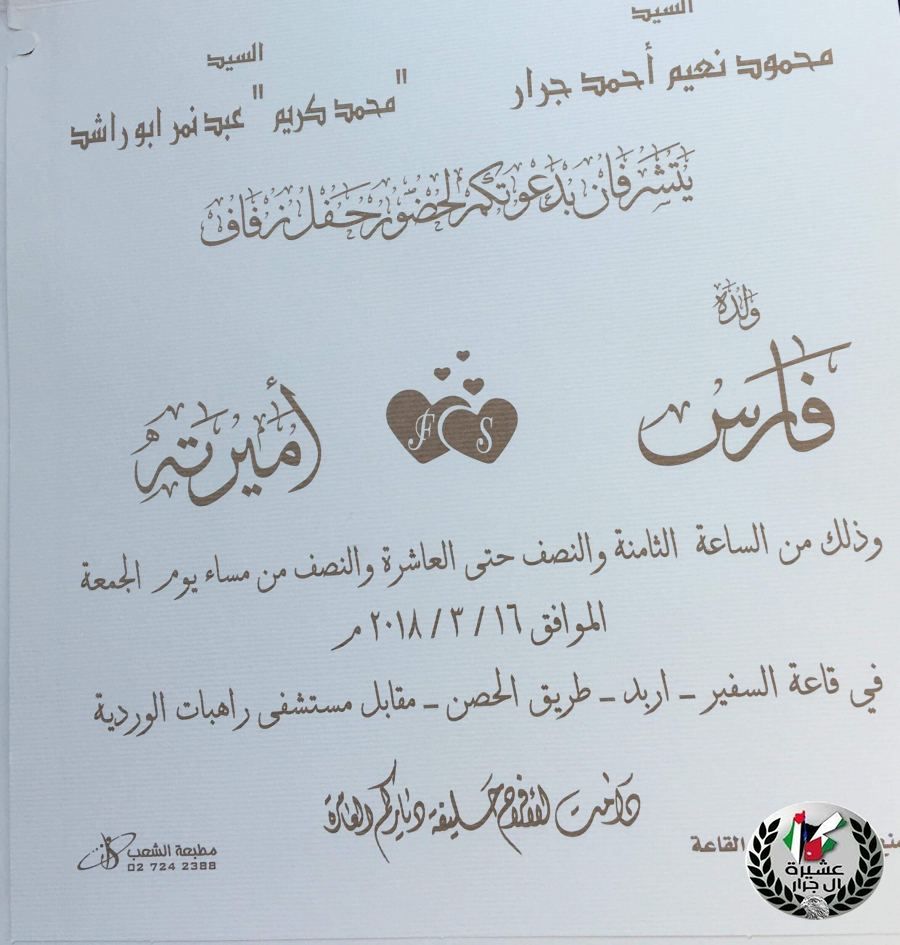 السيد
محمود نعيم أحمد جرار
السيد
"محمد كريم" عبد نمر ابو راشد
يتشرفان بدعوتكم لحضور حفل زفاف
ولده
فارس
F S
أميرته
وذلك من الساعة الثامنة والنصف حتى العاشرة والنصف من مساء يوم الجمعة
الموافق ١٦ / ٣ / ٢٠١٨ م
في قاعة السفير - اربد - طريق الحصن - مقابل مستشفى راهبات الوردية
دامت الأفراح حليفة دياركم العامرة
القاعة
مطبعة الشعب
02 724 2388
عشيرة
ال جرار